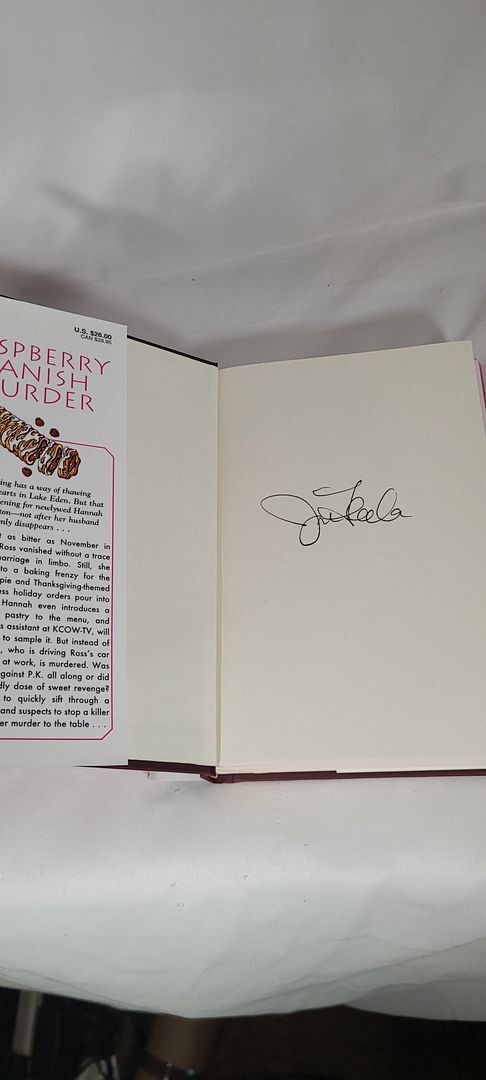 U.S. $26.00
CAN $28.95
SPBERRY
ANISH
URDER
ing has a way of thawing
earts in Lake Eden. But that
ening for newlywed Hannah
ton—not after her husband
nly disappears . . .
t as bitter as November in
Ross vanished without a trace
arriage in limbo. Still, she
to a baking frenzy for the
pie and Thanksgiving-themed
ess holiday orders pour into
Hannah even introduces a
pastry to the menu, and
s assistant at KCOW-TV, will
to sample it. But instead of
, who is driving Ross's car
at work, is murdered. Was
gainst P.K. all along or did
dly dose of sweet revenge?
to quickly sift through a
and suspects to stop a killer
er murder to the table . . .